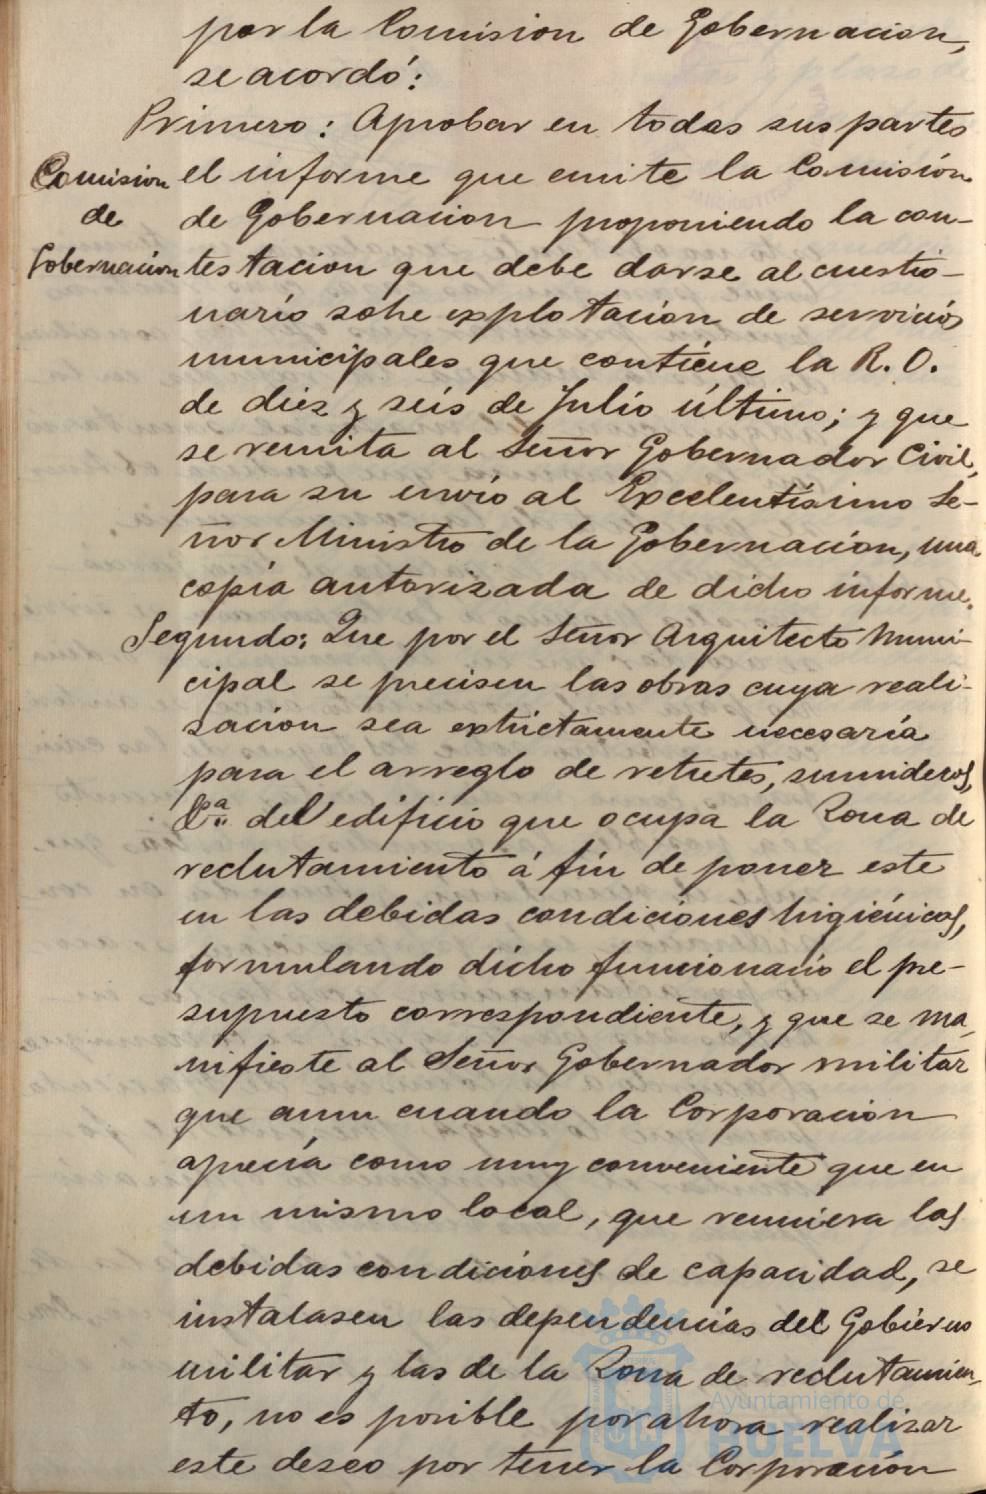 por la Comision de Gobernacion,
se acordó:
Primero: Aprobar en todas sus partes
Comision
de
Gobernacion
el informe que emite la Comisión
de Gobernacion proponiendo la con-
testacion que debe darse al cuestio-
nario sobre explotación de servicios
municipales que contiene la R. O.
de diez y seis de Julio último; y que
se remita al Señor Gobernador Civil,
para su envío al Excelentísimo Se-
ñor Ministro de la Gobernación, una
copia autorizada de dicho informe.
Segundo: Que por el Señor Arquitecto Muni-
cipal se precisen las obras cuya reali-
zacion sea extrictamente necesaria
para el arreglo de retretes, sumideros,
&ª del edificio que ocupa la Zona de
reclutamiento á fin de poner este
en las debidas condiciones higiénicas,
formulando dicho funcionario el pre-
supuesto correspondiente, y que se ma-
nifieste al Señor Gobernador militar
que aun cuando la Corporación
aprecia como muy conveniente que en
un mismo local, que reuniera las
debidas condiciones de capacidad, se
instalasen las dependencias del Gobierno
militar y las de la Zona de reclutamien-
to, no es posible por ahora realizar
este deseo por tener la Corporación
Ayuntamiento de
HUELVA